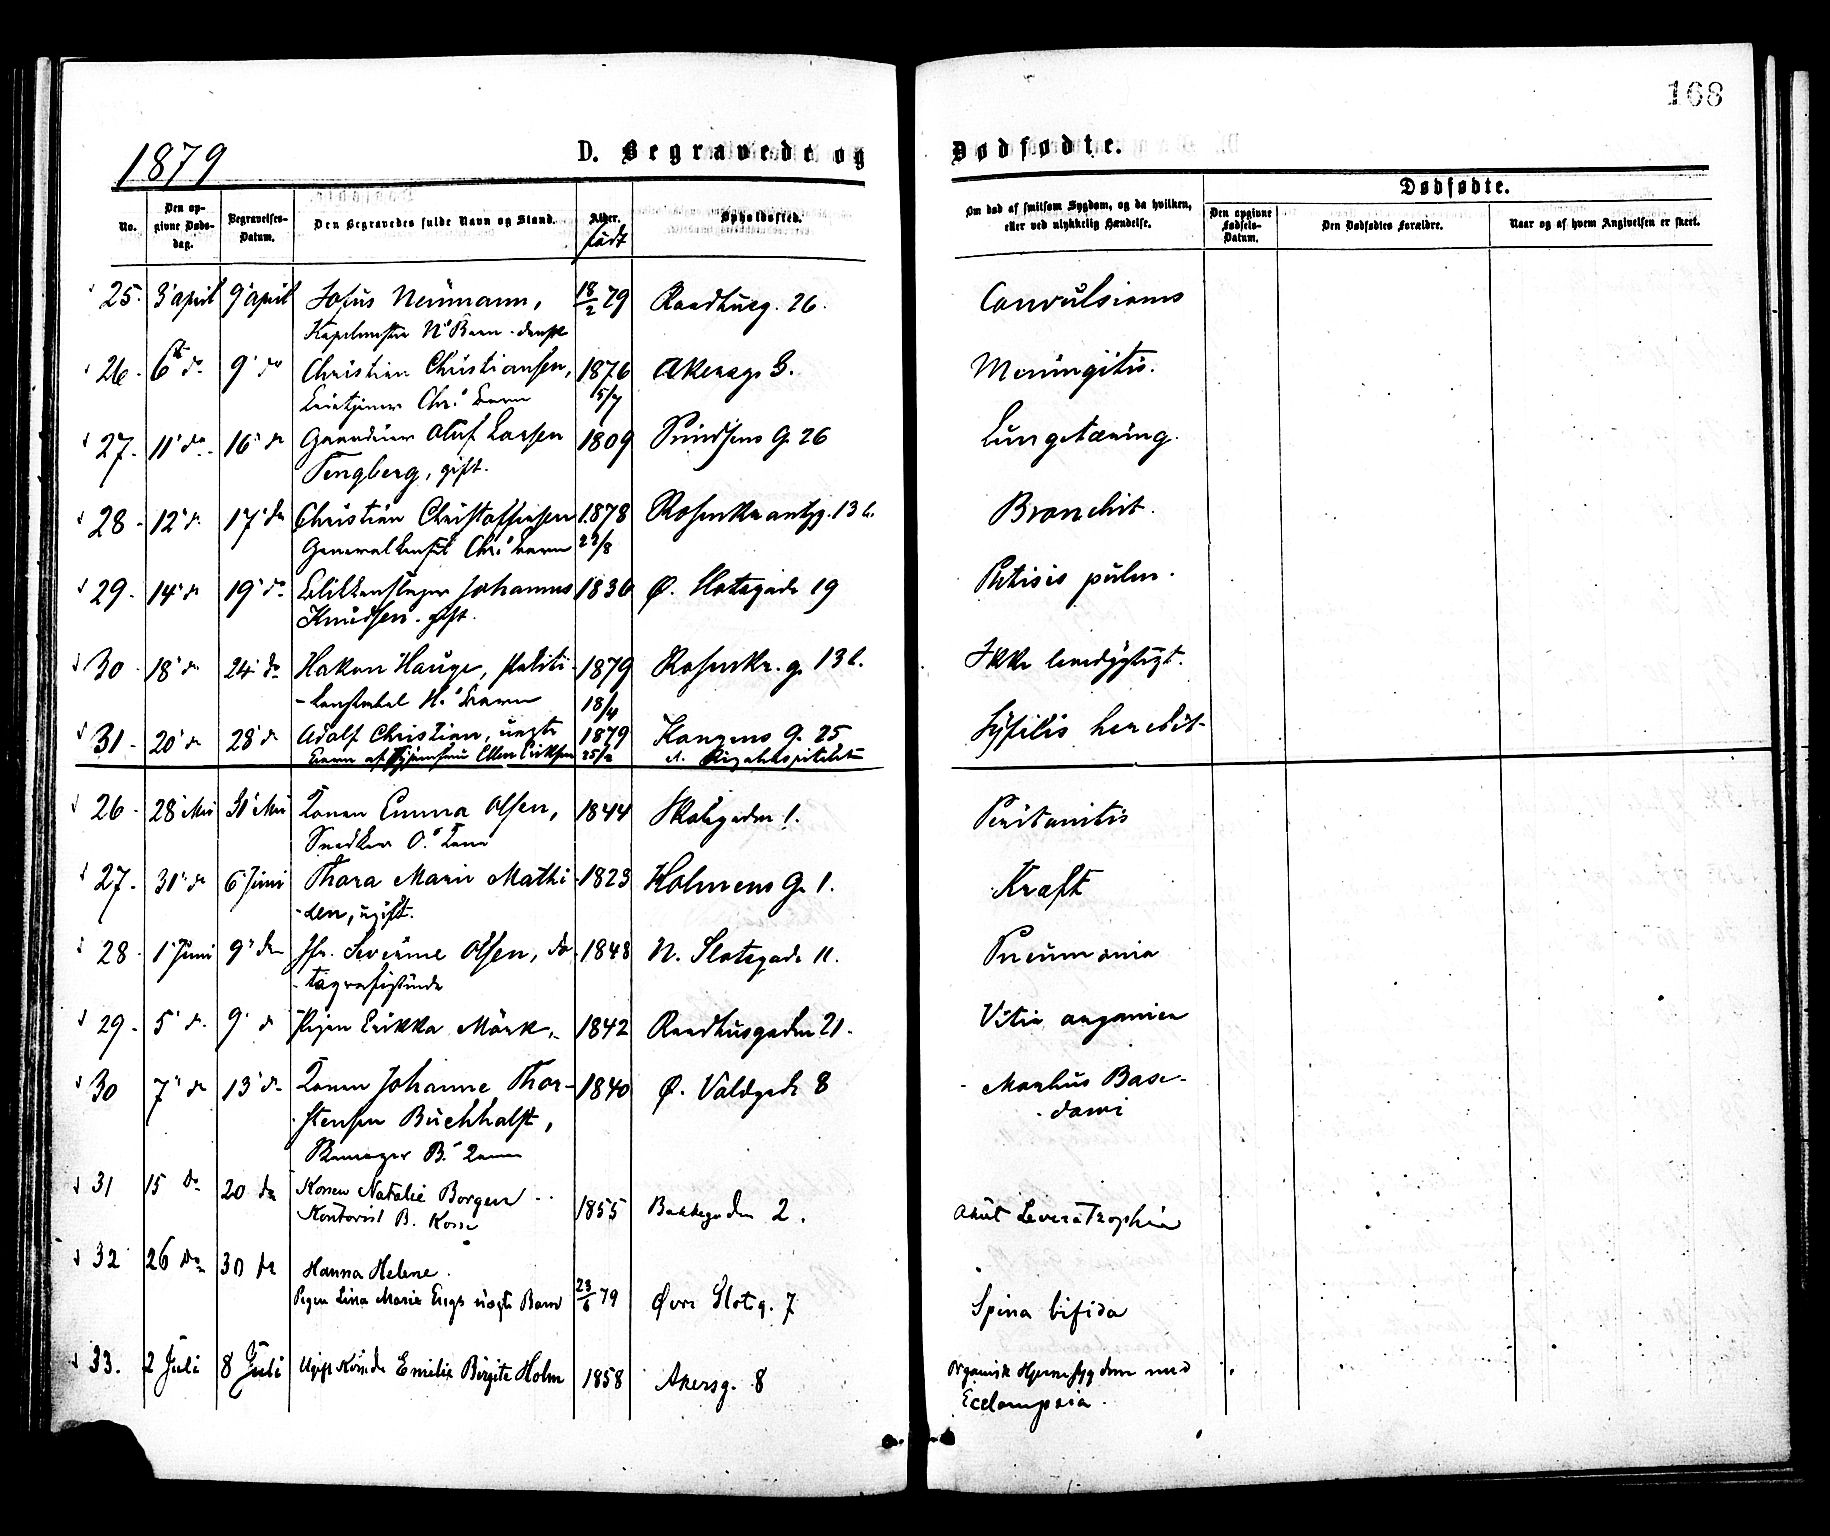 168
1879
D. Begravede og
Dødfødte.
No.
Den op-
givne Døds-
dag.
Begravelses-
Datum.
Den Begravedes fulde Navn og Stand.
Alder.
født
Opholdssted.
Om død af smitsom Sygdom, og da hvilken,
eller ved ulykkelig Hændelse.
Dødfødte.
Den opgivne
Fødsels-
Datum.
Den Dødfødtes Forældre.
Naar og af hvem Angivelsen er skeet.
25. 3' april 9' april Sofus Neumann, 18/2 79 Raadhusg. 26. Convulsions
N's Barn
26. 6te do 9' do Christian Christiansen, 1876 Akersg. 3. Meningitis.
Chr.s Barn 5/7
27. 11' do 16' do Oluf Larsen 1809 26 Lungetæring.
Tengberg, gift.
28. 12' do 17' do Christian Christoffersen 1878 Rosenkrantzg. 13 b. Bronchit.
Chr.s Barn 22/8
29. 14' do 19' do Johannes 1836 Ø. Slotsgade 19 Phtisis pulm.
Knudsen. gift.
30 18' do 24' do Hakon Hauge, Politi- 1879 Rosenkr. g. 13 b. Ikke levedygtigt.
-konstabel H.s Barn 18/4
31. 20' do 28' do Adolf Christian, uægte 1879 Kongens G. 25 Syfilis heredit.
Barn af Ellen Eriksen 25/2 Rigshospitalet
26. 28' Mai 31' Mai Konen Emma Olsen, 1844 Skolegaden 1. Peritonitis
Snedker O.s Kone
27. 31' do 6' Juni Thora Marie Mathi- 1823 Holmens G. 1. Kræft
-sen, ugift.
28. 1' Juni 9' do Jfr. Severine Olsen, fo- 1848 N. Slotsgade 11. Pneumonia
-tografistinde
29. 5' do. 9' do Pigen Erikka Mörk, 1842 Raadhusgaden 21. Vitia organica
30 7' do 13' do Konen Johanne Thor- 1840 Ø. Voldgade 8 Morbus Base-
-stensen Buchholst, -dowi
B.s Kone
31 15 do 20 do Konen Natalie Borgen 1855 Bakkegaden 2. Akut Leveratrophia
Kontorist B. Kone
32 26 do 30 do Hanna Helene. 23/6 79 Øvre Slotsg. 7 Spina bifida
Pigen Lina Marie Engs uægte Barn
33. 2 Juli 8 Juli Ugift Kvinde Emilie Birgite Holm 1858 Akersg. 8 Organisk Hjernesygdom med
Eclampsia.